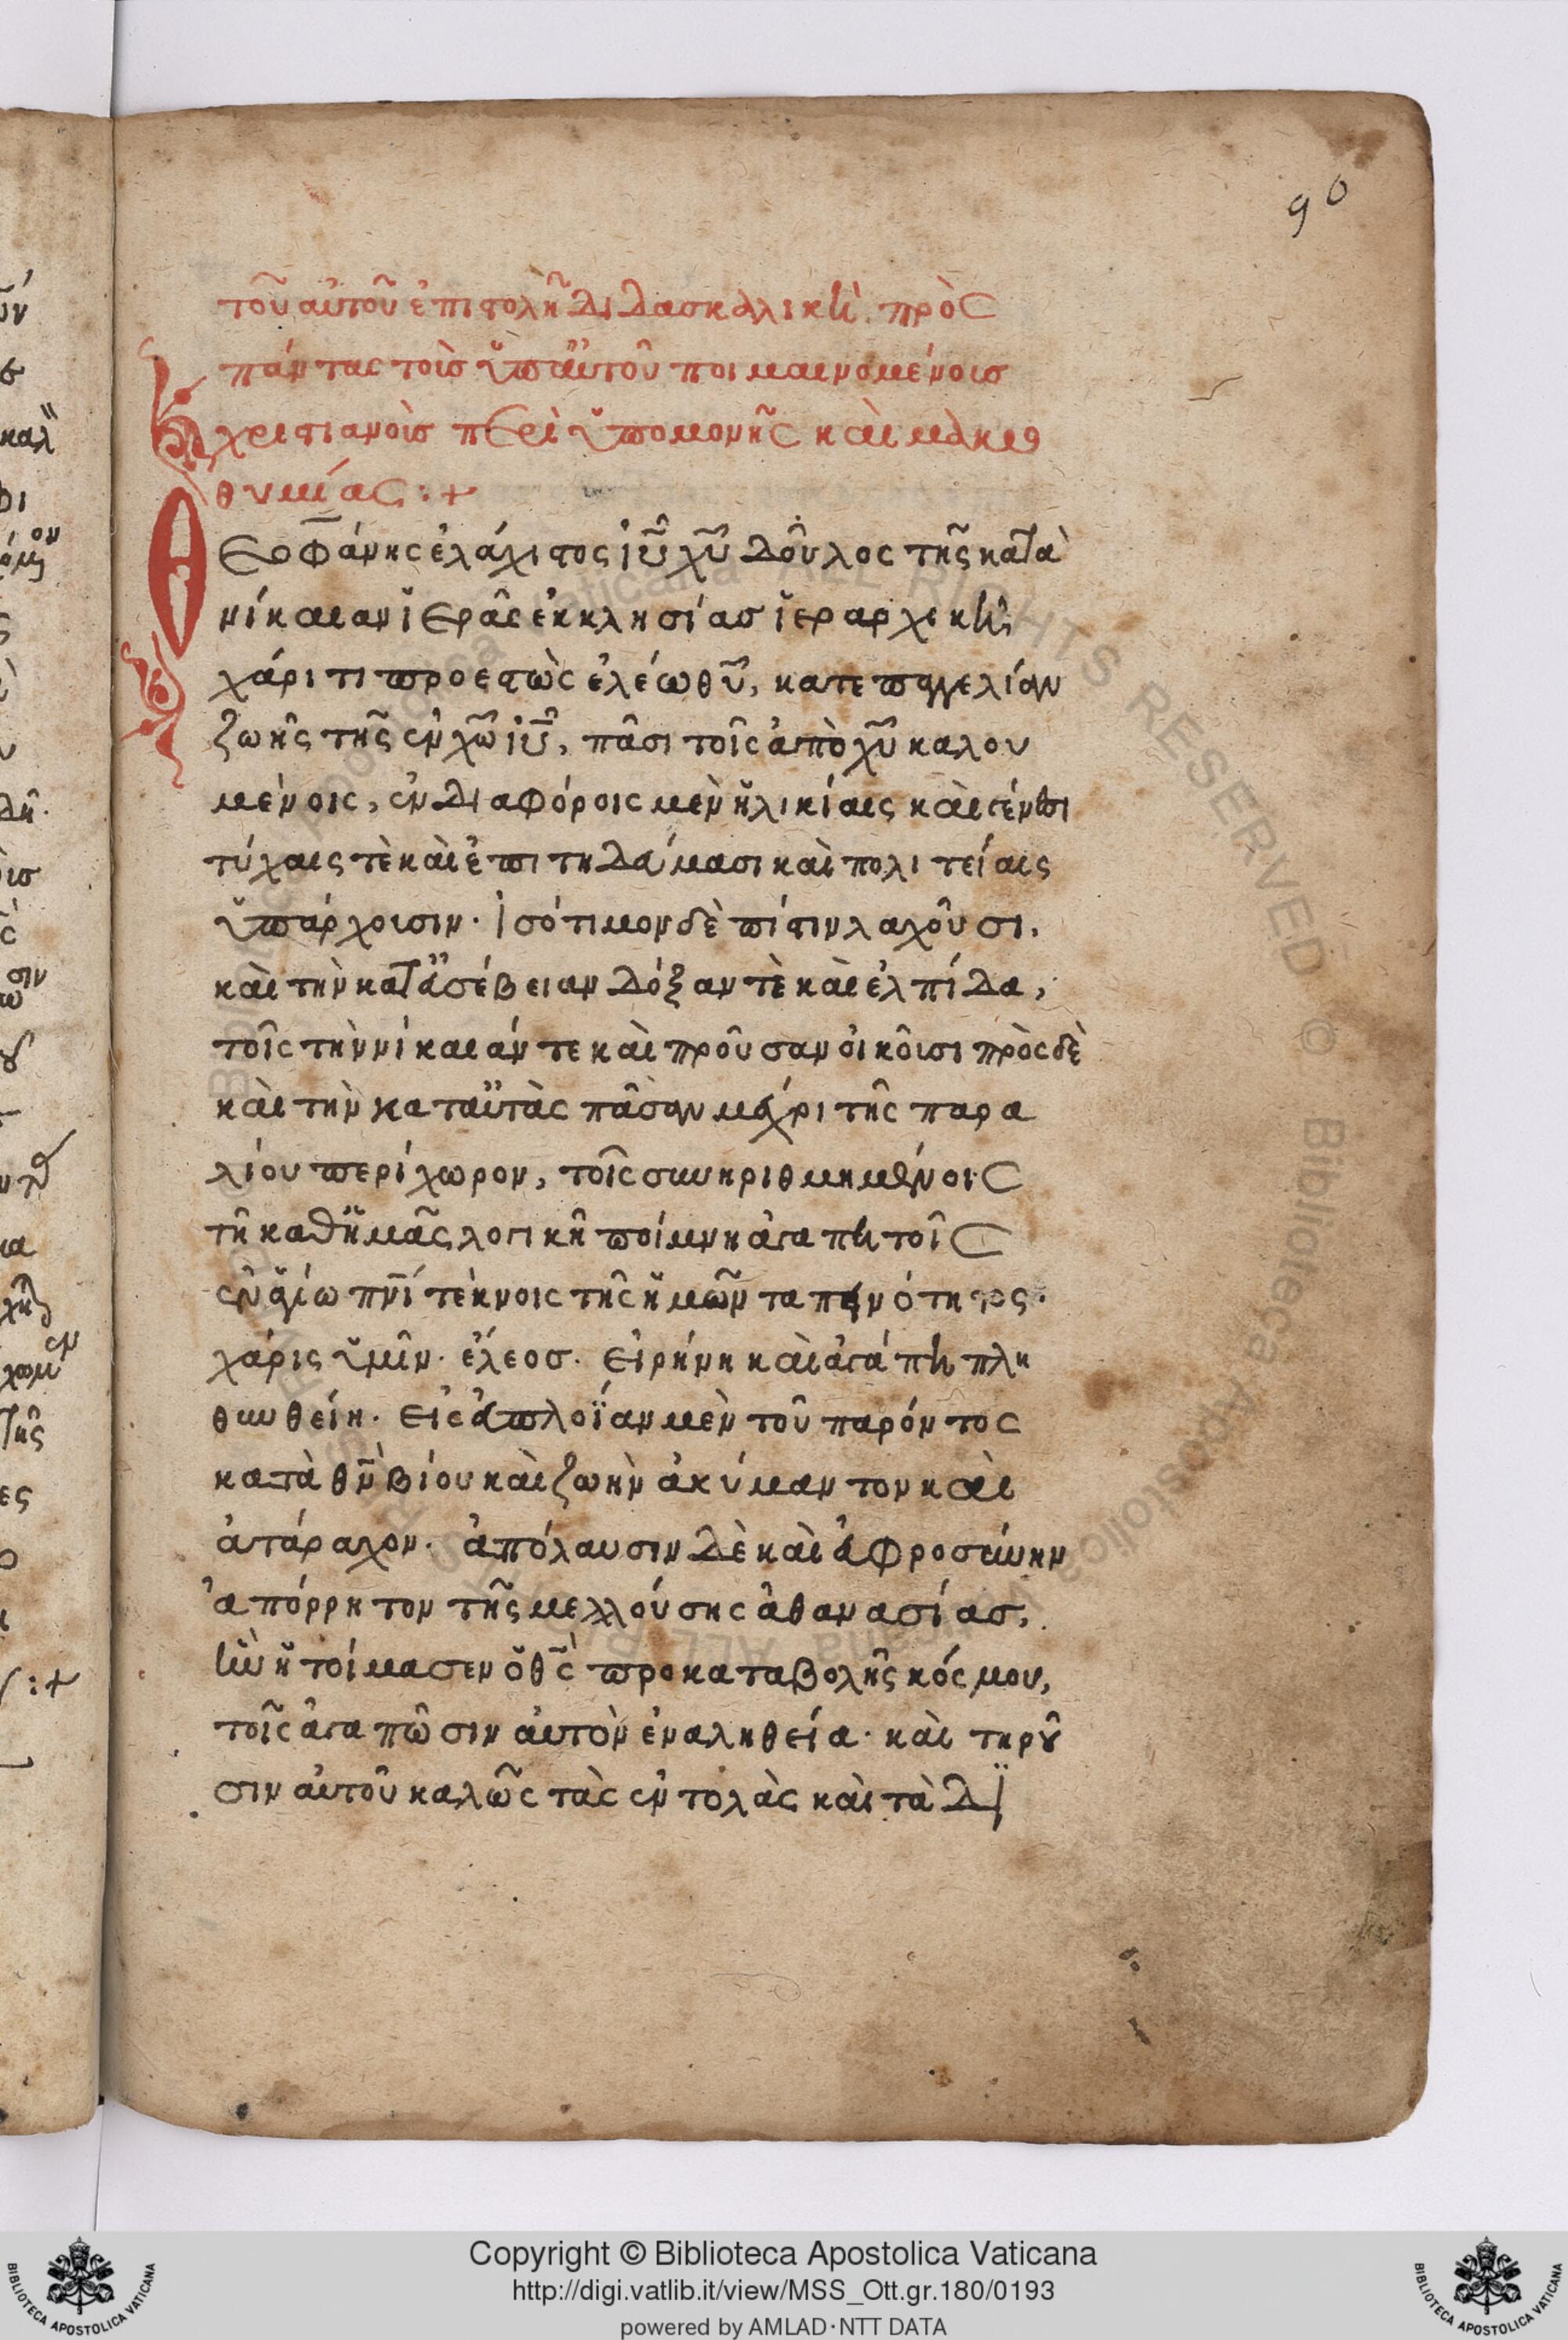 90
τοῦ αὐτοῦ ἐπιστολὴ διδασκαλικὴ πρὸς
πάντας τοῖσ ὑπ' αὐτοῦ ποιμαινομένοισ
χριστιανοῖσ περὶ ὑπομονῆς καὶ μακρο
θυμίας :+
Θεοφάνης ἐλάχιστος ἰῦ χῦ δοῦλος τῆς κατὰ
νίκαιαν ἱερᾶς ἐκκλησίασ ἱεραρχικῆ,
χάριτι προεστὼς ἐλέω θῦ, κατ' επαγγελίαν
ζωῆς τῆς ἐν χῶ ἰῦ, πᾶσι τοῖς ἀπὸ χῦ καλου
μένοις, ἐν διαφόροις μὲν ἡλικίαις καὶ γένεσι
τύχαις τὲ καὶ ἐπιτηδεύμασι καὶ πολιτείαις
ὑπάρχουσιν. ἰσότιμον δὲ πίστιν λαχοῦσι,
καὶ τὴν κατ' εὐσέβειαν δόξαν τὲ καὶ ἐλπίδα,
τοῖς τὴν νίκαιάν τε καὶ προῦσαν οἰκοῦσι πρὸς δὲ
καὶ τὴν κατ' αὐτὰς πᾶσαν μέχρι τῆς παρα
λίου περίχωρον, τοῖς συνηριθμημένοις
τῆ καθ' ἡμᾶς λογικῆ ποίμνη ἀγαπητοῖς
ἐν ἁγίω πνὶ τέκνοις τῆς ἡμῶν ταπεινότητος.
χάρις ὑμῖν. ἔλεοσ. εἰρήνη καὶ ἀγάπη πλη
θυνθείη. εἰς εὐπλοΐαν μὲν τοῦ παρόντος
κατὰ θν̄ βίου καὶ ζωὴν ἀκύμαντον καὶ
ἀτάραχον. ἀπόλαυσιν δὲ καὶ εὐφροσύνην
ἀπόρρητον τῆς μελλούσης ἀθανασίασ,
ἣν ἡτοίμασεν ὁ θς̄ προ καταβολῆς κόσμου,
τοῖς ἀγαπῶσιν αὐτὸν ἐν αληθεία. καὶ τηροῦ
σιν αὐτοῦ καλῶς τὰς ἐντολὰς καὶ τὰ δι
Copyright © Biblioteca Apostolica Vaticana
http://digi.vatlib.it/view/MSS_Ott.gr.180/0193
powered by AMLAD·NTT DATA